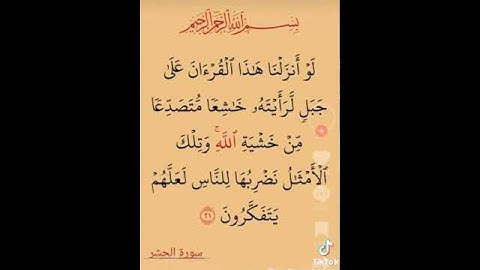 بِسْمِ اللَّهِ الرَّحْمَٰنِ الرَّحِيمِ
لَوْ أَنزَلْنَا هَٰذَا ٱلْقُرْءَانَ عَلَىٰ
جَبَلٍ لَّرَأَيْتَهُۥ خَٰشِعًا مُّتَصَدِّعًا
مِّنْ خَشْيَةِ ٱللَّهِۚ وَتِلْكَ
ٱلْأَمْثَٰلُ نَضْرِبُهَا لِلنَّاسِ لَعَلَّهُمْ
يَتَفَكَّرُونَ ٢١
سورة الحشر
TikTok